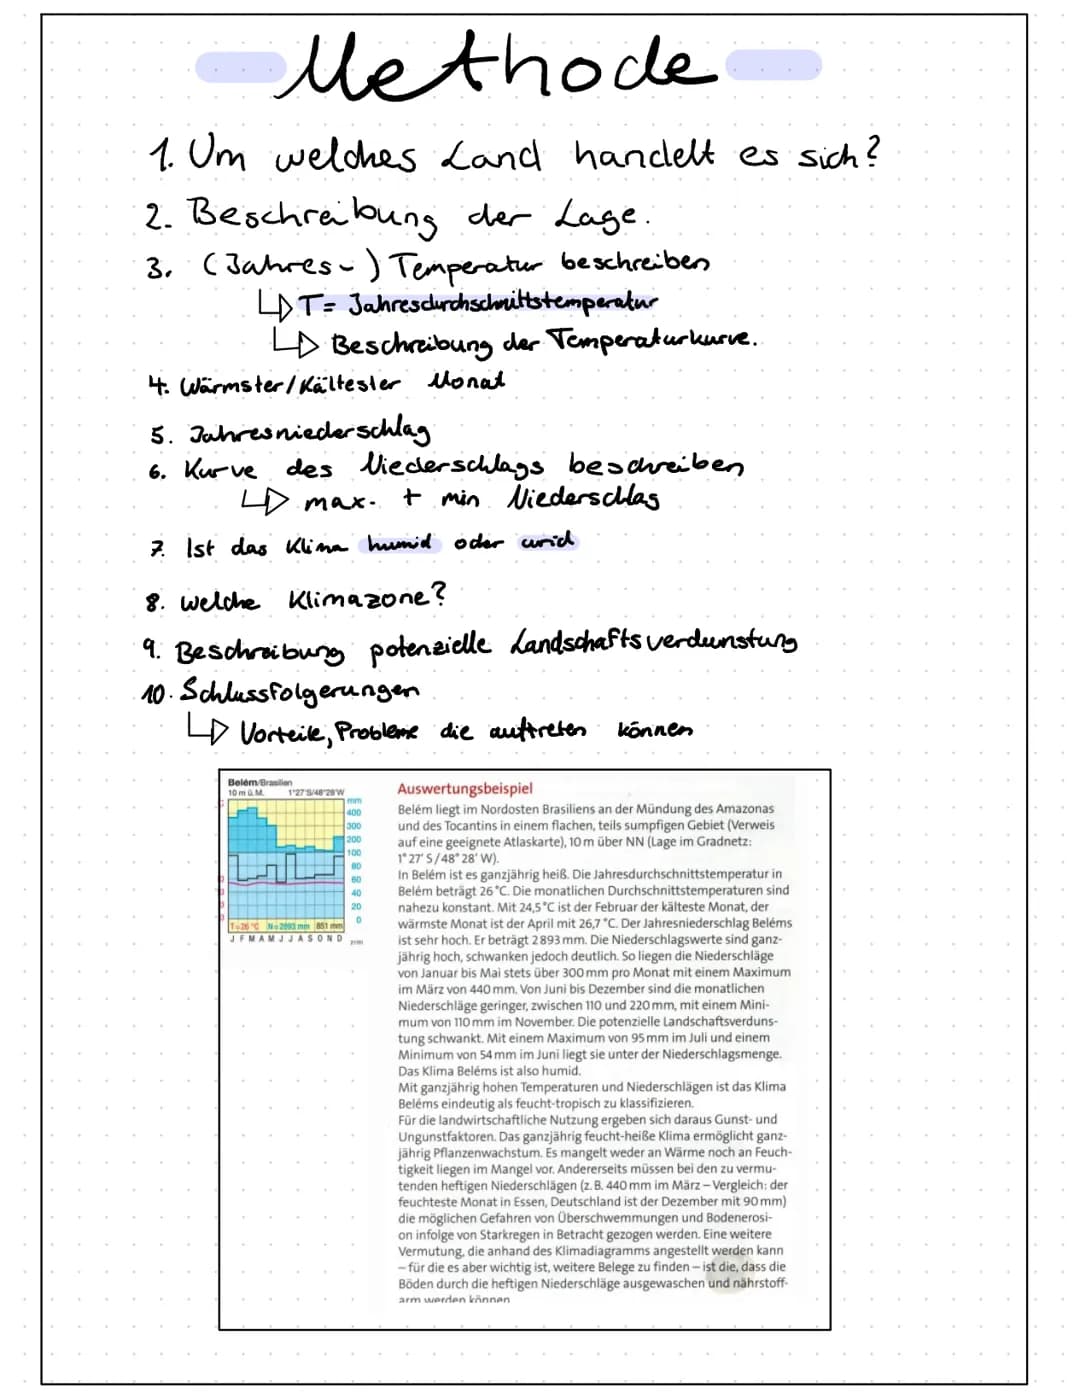 Methode
1. Um welches Land handelt es sich?
2. Beschreibung der Lage.
3. (Jahres-) Temperatur beschreiben
T= Jahresdurchschnittstemperatur
Beschreibung der Temperaturkurve.
4. Wärmster/Kältester Monat
5. Jahresniederschlag
6. Kurve des Niederschlags beschreiben
max. + min Niederschlag
7. Ist das Klima humid oder arid
8. welche Klimazone?
9. Beschreibung potenzielle Landschaftsverdunstung
10. Schlussfolgerungen
Vorteile, Probleme die auftreten können
Belém/Brasilien
10 m ü.M. 1°27'S/48°28'W
mm
400
300
200
100
80
60
40
20
0
T=26 °C N=2893 mm 851 mm
J F M A M J J A S O N D
Auswertungsbeispiel
Belém liegt im Nordosten Brasiliens an der Mündung des Amazonas
und des Tocantins in einem flachen, teils sumpfigen Gebiet (Verweis
auf eine geeignete Atlaskarte), 10 m über NN (Lage im Gradnetz:
1° 27' S/48° 28' W).
In Belém ist es ganzjährig heiß. Die Jahresdurchschnittstemperatur in
Belém beträgt 26 °C. Die monatlichen Durchschnittstemperaturen sind
nahezu konstant. Mit 24,5 °C ist der Februar der kälteste Monat, der
wärmste Monat ist der April mit 26,7 °C. Der Jahresniederschlag Beléms
ist sehr hoch. Er beträgt 2 893 mm. Die Niederschlagswerte sind ganz-
jährig hoch, schwanken jedoch deutlich. So liegen die Niederschläge
von Januar bis Mai stets über 300 mm pro Monat mit einem Maximum
im März von 440 mm. Von Juni bis Dezember sind die monatlichen
Niederschläge geringer, zwischen 110 und 220 mm, mit einem Mini-
mum von 110 mm im November. Die potenzielle Landschaftsverduns-
tung schwankt. Mit einem Maximum von 95 mm im Juli und einem
Minimum von 54 mm im Juni liegt sie unter der Niederschlagsmenge.
Das Klima Beléms ist also humid.
Mit ganzjährig hohen Temperaturen und Niederschlägen ist das Klima
Beléms eindeutig als feucht-tropisch zu klassifizieren.
Für die landwirtschaftliche Nutzung ergeben sich daraus Gunst- und
Ungunstfaktoren. Das ganzjährig feucht-heiße Klima ermöglicht ganz-
jährig Pflanzenwachstum. Es mangelt weder an Wärme noch an Feuch-
tigkeit liegen im Mangel vor. Andererseits müssen bei den zu vermu-
tenden heftigen Niederschlägen (z. B. 440 mm im März – Vergleich: der
feuchteste Monat in Essen, Deutschland ist der Dezember mit 90 mm)
die möglichen Gefahren von Überschwemmungen und Bodenerosi-
on infolge von Starkregen in Betracht gezogen werden. Eine weitere
Vermutung, die anhand des Klimadiagramms angestellt werden kann
– für die es aber wichtig ist, weitere Belege zu finden – ist die, dass die
Böden durch die heftigen Niederschläge ausgewaschen und nährstoff-
arm werden können